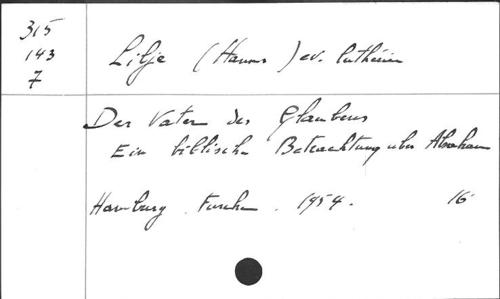 315
143
7
Lilje (Hanns) ev. luthérien
Der Vater des Glaubens
Ein biblische Betrachtung uber Abraham
Hamburg. Furche. 1954. 16